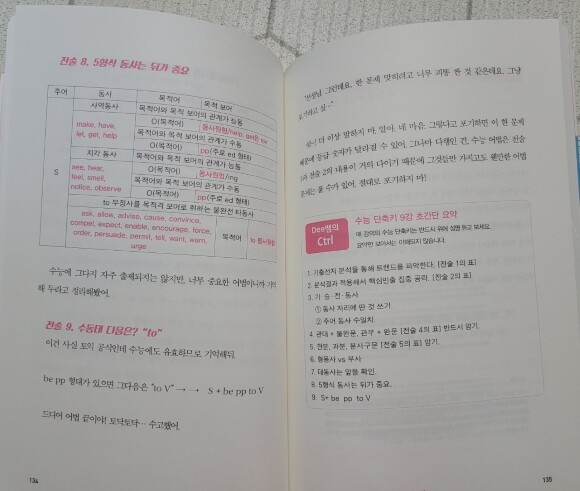 전술 8. 5형식 동사는 뒤가 중요
주어 동사 목적어 목적 보어
사역동사 목적어와 목적 보어의 관계가 능동
make, have, let, get, help O(목적어)
목적어와 목적 보어의 관계가 수동
O(목적어) pp(주로 ed 형태)
S
지각 동사 목적어와 목적 보어의 관계가 능동
see, hear, feel, smell, notice, observe O(목적어) 동사원형/ing
목적어와 목적 보어의 관계가 수동
O(목적어) pp(주로 ed 형태)
to 부정사를 목적격 보어로 취하는 불완전 타동사
ask, allow, advise, cause, convince,
compel, expect, enable, encourage, force,
order, persuade, permit, tell, want, warn,
urge
목적어 to 동사원형
수능에 그다지 자주 출제되지는 않지만, 너무 중요한 어법이니까 기억
해 두라고 정리해봤어.
전술 9. 수동태 다음은? "to"
이건 사실 토익 공식인데 수능에도 유효하므로 기억해둬.
be pp 형태가 있으면 그다음은 "to V" → → S + be pp to V
드디어 어법 끝이야! 토닥토닥… 수고했어.
134
"선생님 그런데요, 한 문제 맞히려고 너무 공부 한 것 같은데요. 그냥
쉿~! 더 이상 말하지 마. 알아, 네 마음. 그렇다고 포기하면 이 한 문제
때문에 등급 숫자가 달라질 수 있어. 그나마 다행인 건, 수능 어법은 전술
1과 전술 2의 내용이 거의 다이기 때문에 그것들만 가지고도 웬만한 어법
문제는 풀 수가 있어. 절대로 포기하지 마!
Dee쌤의
Ctrl
수능 단축키 9강 초간단 요약
매 강의의 수능 단축키는 반드시 위에 설명 듣고 보세요.
요약만 보아서는 이해되지 않습니다.
1. 기출선지 분석을 통해 트렌드를 파악한다. [전술 1의 표]
2. 분석결과 적용해서 핵심빈출 집중 공략. [전술 2의 표]
3. 기-승-전-동사
① 동사 자리에 딴 것 쓰기.
② 주어 동사 수일치.
4. 관대 + 불완문, 관부 + 완문 [전술 4의 표] 반드시 암기.
5. 현분, 과분, 분사구문 [전술 5의 표] 암기.
6. 형용사 vs 부사
7. 대동사는 앞을 확인.
8. 5형식 동사는 뒤가 중요.
9. S+ be pp to V
135